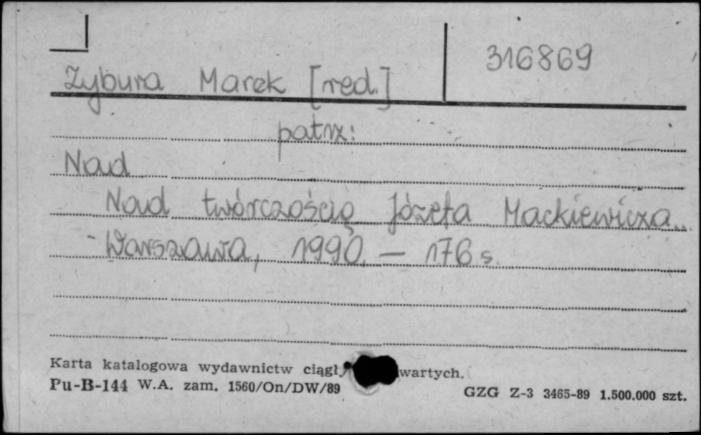 316869
Zybura Marek [red.]
patrz:
Nad
Nad twórczością Józefa Mackiewicza.
Warszawa, 1990. – 176 s.
Karta katalogowa wydawnictw ciągł wartych.
Pu-B-144 W.A. zam. 1560/On/DW/89
GZG Z-3 3465-89 1.500.000 szt.